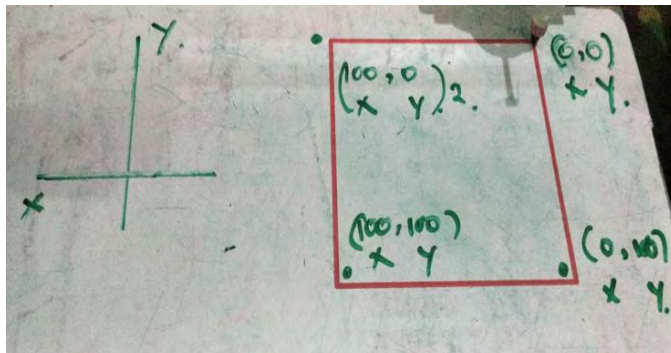 Y.
X
(100,0)
X Y).2.
(0,0)
X Y.
(100,100)
X Y
(0,100)
X Y.